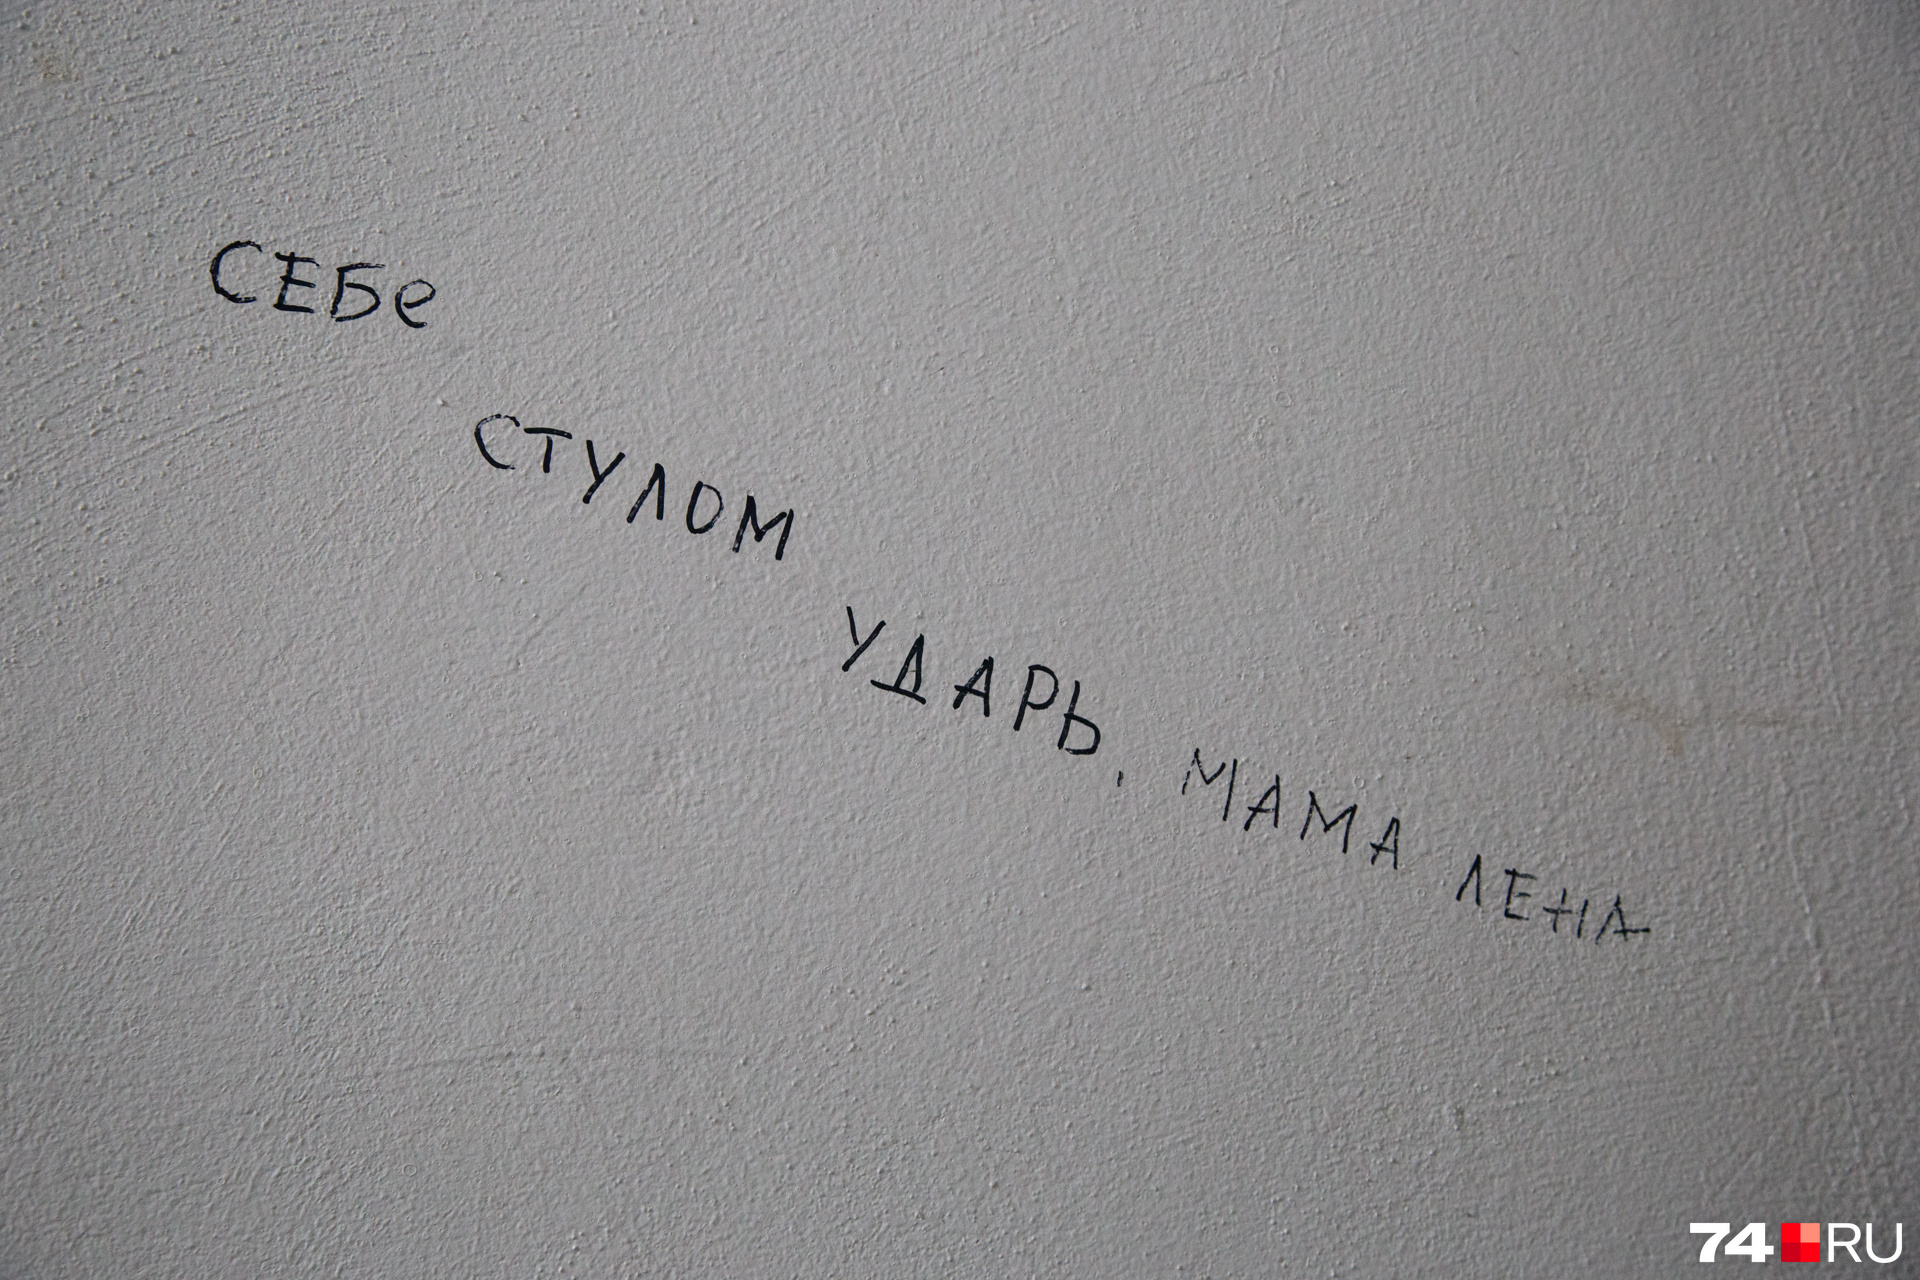 СЕБе СТУЛОМ УДАРЬ, МАМА ЛЕНА
74 RU